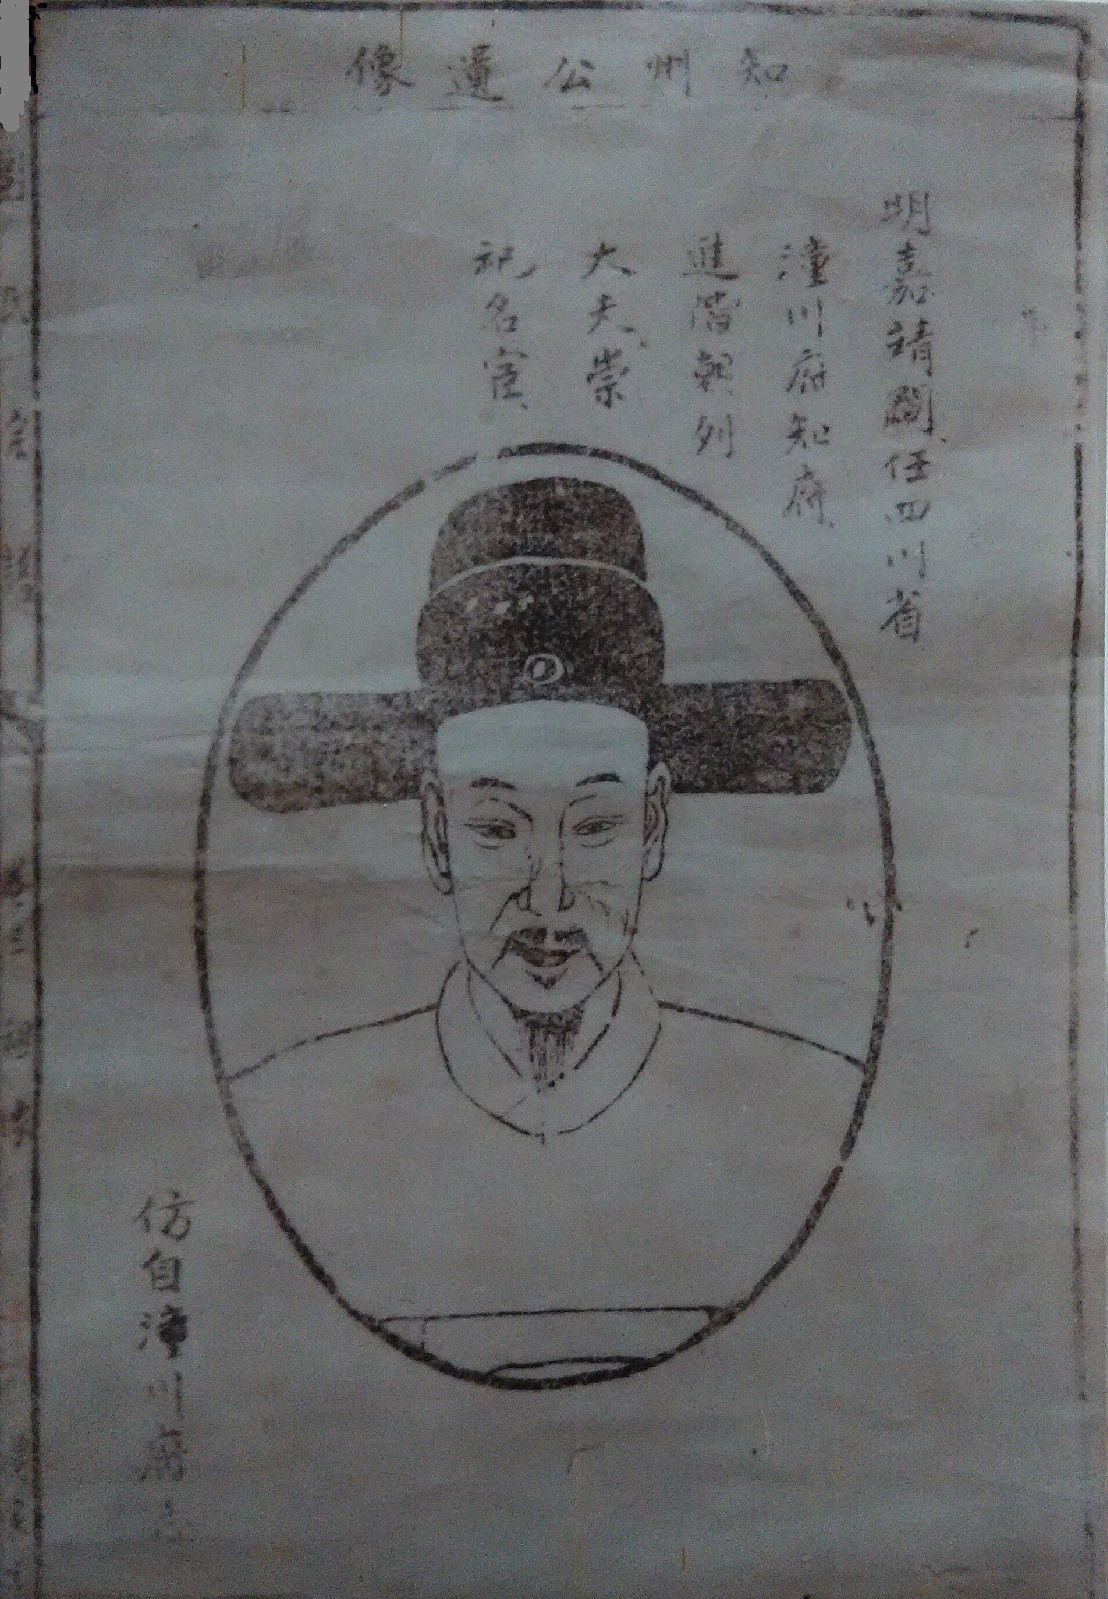 知州公遺像
明嘉靖間任四川省
潼川府知府
進階朝列
大夫崇
祀名宦
仿自潼川府志